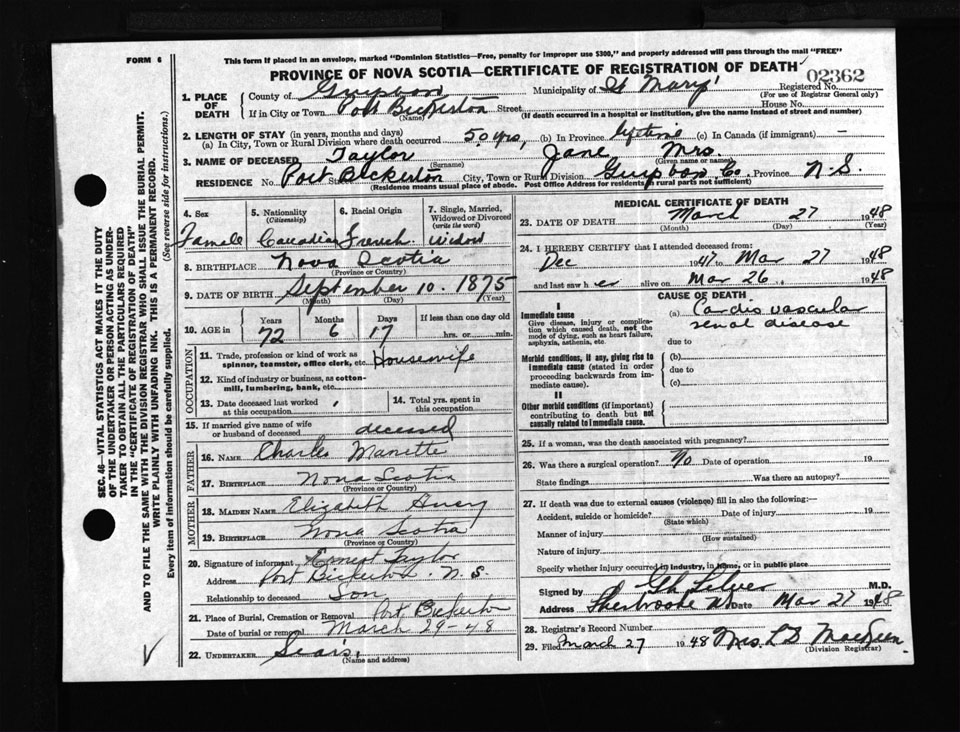 FORM 6
This form if placed in an envelope, marked "Dominion Statistics—Free, penalty for improper use $300," and properly addressed will pass through the mail "FREE"
PROVINCE OF NOVA SCOTIA—CERTIFICATE OF REGISTRATION OF DEATH
02362
1. PLACE OF DEATH
County of Municipality of St Mary's Registered No.
(For use of Registrar General only)
If in City or Town Port Bickerton Street House No.
(Name) (If death occurred in a hospital or institution, give the name instead of street and number)
2. LENGTH OF STAY (in years, months and days)
(a) In City, Town or Rural Division where death occurred 50 yrs, (b) In Province lifetime (c) In Canada (if immigrant) —
3. NAME OF DECEASED Taylor Jane Mrs.
(Surname) (Given name or names)
RESIDENCE No. Port Bickerton City, Town or Rural Division Co. Province N.S.
(Residence means usual place of abode. Post Office Address for residents in rural parts not sufficient)
4. Sex
Female
5. Nationality
(Citizenship)
Canadian
6. Racial Origin
French
7. Single, Married, Widowed or Divorced
(write the word)
Widow
8. BIRTHPLACE Nova Scotia
(Province or Country)
9. DATE OF BIRTH September 10. 1875
(Month) (Day) (Year)
10. AGE in
Years Months Days If less than one day old
72 6 17 hrs. or min.
OCCUPATION
11. Trade, profession or kind of work as spinner, teamster, office clerk, etc. Housewife
12. Kind of industry or business, as cotton-mill, lumbering, bank, etc.
13. Date deceased last worked at this occupation
14. Total yrs. spent in this occupation
15. If married give name of wife or husband of deceased deceased
FATHER
16. NAME Charles Manette
17. BIRTHPLACE Nova Scotia
MOTHER
18. MAIDEN NAME Elizabeth
19. BIRTHPLACE Nova Scotia
(Province or Country)
20. Signature of informant Ernest Taylor
Address Port Bickerton. N.S
Relationship to deceased Son
21. Place of Burial, Cremation or Removal Port Bickerton
Date of burial or removal March 29-48
22. UNDERTAKER Sears.
(Name and address)
MEDICAL CERTIFICATE OF DEATH
23. DATE OF DEATH March 27 1948
(Month) (Day) (Year)
24. I HEREBY CERTIFY that I attended deceased from:
Dec 1947 to Mar 27 1948
and last saw her alive on Mar 26. 1948
CAUSE OF DEATH
I
Immediate cause
Give disease, injury or complication which caused death, not the mode of dying, such as heart failure, asphyxia, asthenia, etc.
(a) Cardio vascular
renal disease
due to
Morbid conditions, if any, giving rise to immediate cause (stated in order proceeding backwards from immediate cause).
(b)
due to
(c)
II
Other morbid conditions (if important) contributing to death but not causally related to immediate cause.
25. If a woman, was the death associated with pregnancy?
26. Was there a surgical operation? No Date of operation 19
State findings Was there an autopsy?
27. If death was due to external causes (violence) fill in also the following:—
Accident, suicide or homicide? Date of injury 19
(State which)
Manner of injury
(How sustained)
Nature of injury
Specify whether injury occurred in industry, in home, or in public place
Signed by M.D.
Address Sherbrooke Date Mar 27 1948
28. Registrar's Record Number
29. Filed March 27 1948 Mrs.
(Division Registrar)
SEC. 46—VITAL STATISTICS ACT MAKES IT THE DUTY
OF THE UNDERTAKER OR PERSON ACTING AS UNDER-
TAKER TO OBTAIN ALL THE PARTICULARS REQUIRED
IN THE "CERTIFICATE OF REGISTRATION OF DEATH"
AND TO FILE THE SAME WITH THE DIVISION REGISTRAR WHO SHALL ISSUE THE BURIAL PERMIT.
WRITE PLAINLY WITH UNFADING INK. THIS IS A PERMANENT RECORD.
Every item of information should be carefully supplied. (See reverse side for instructions.)